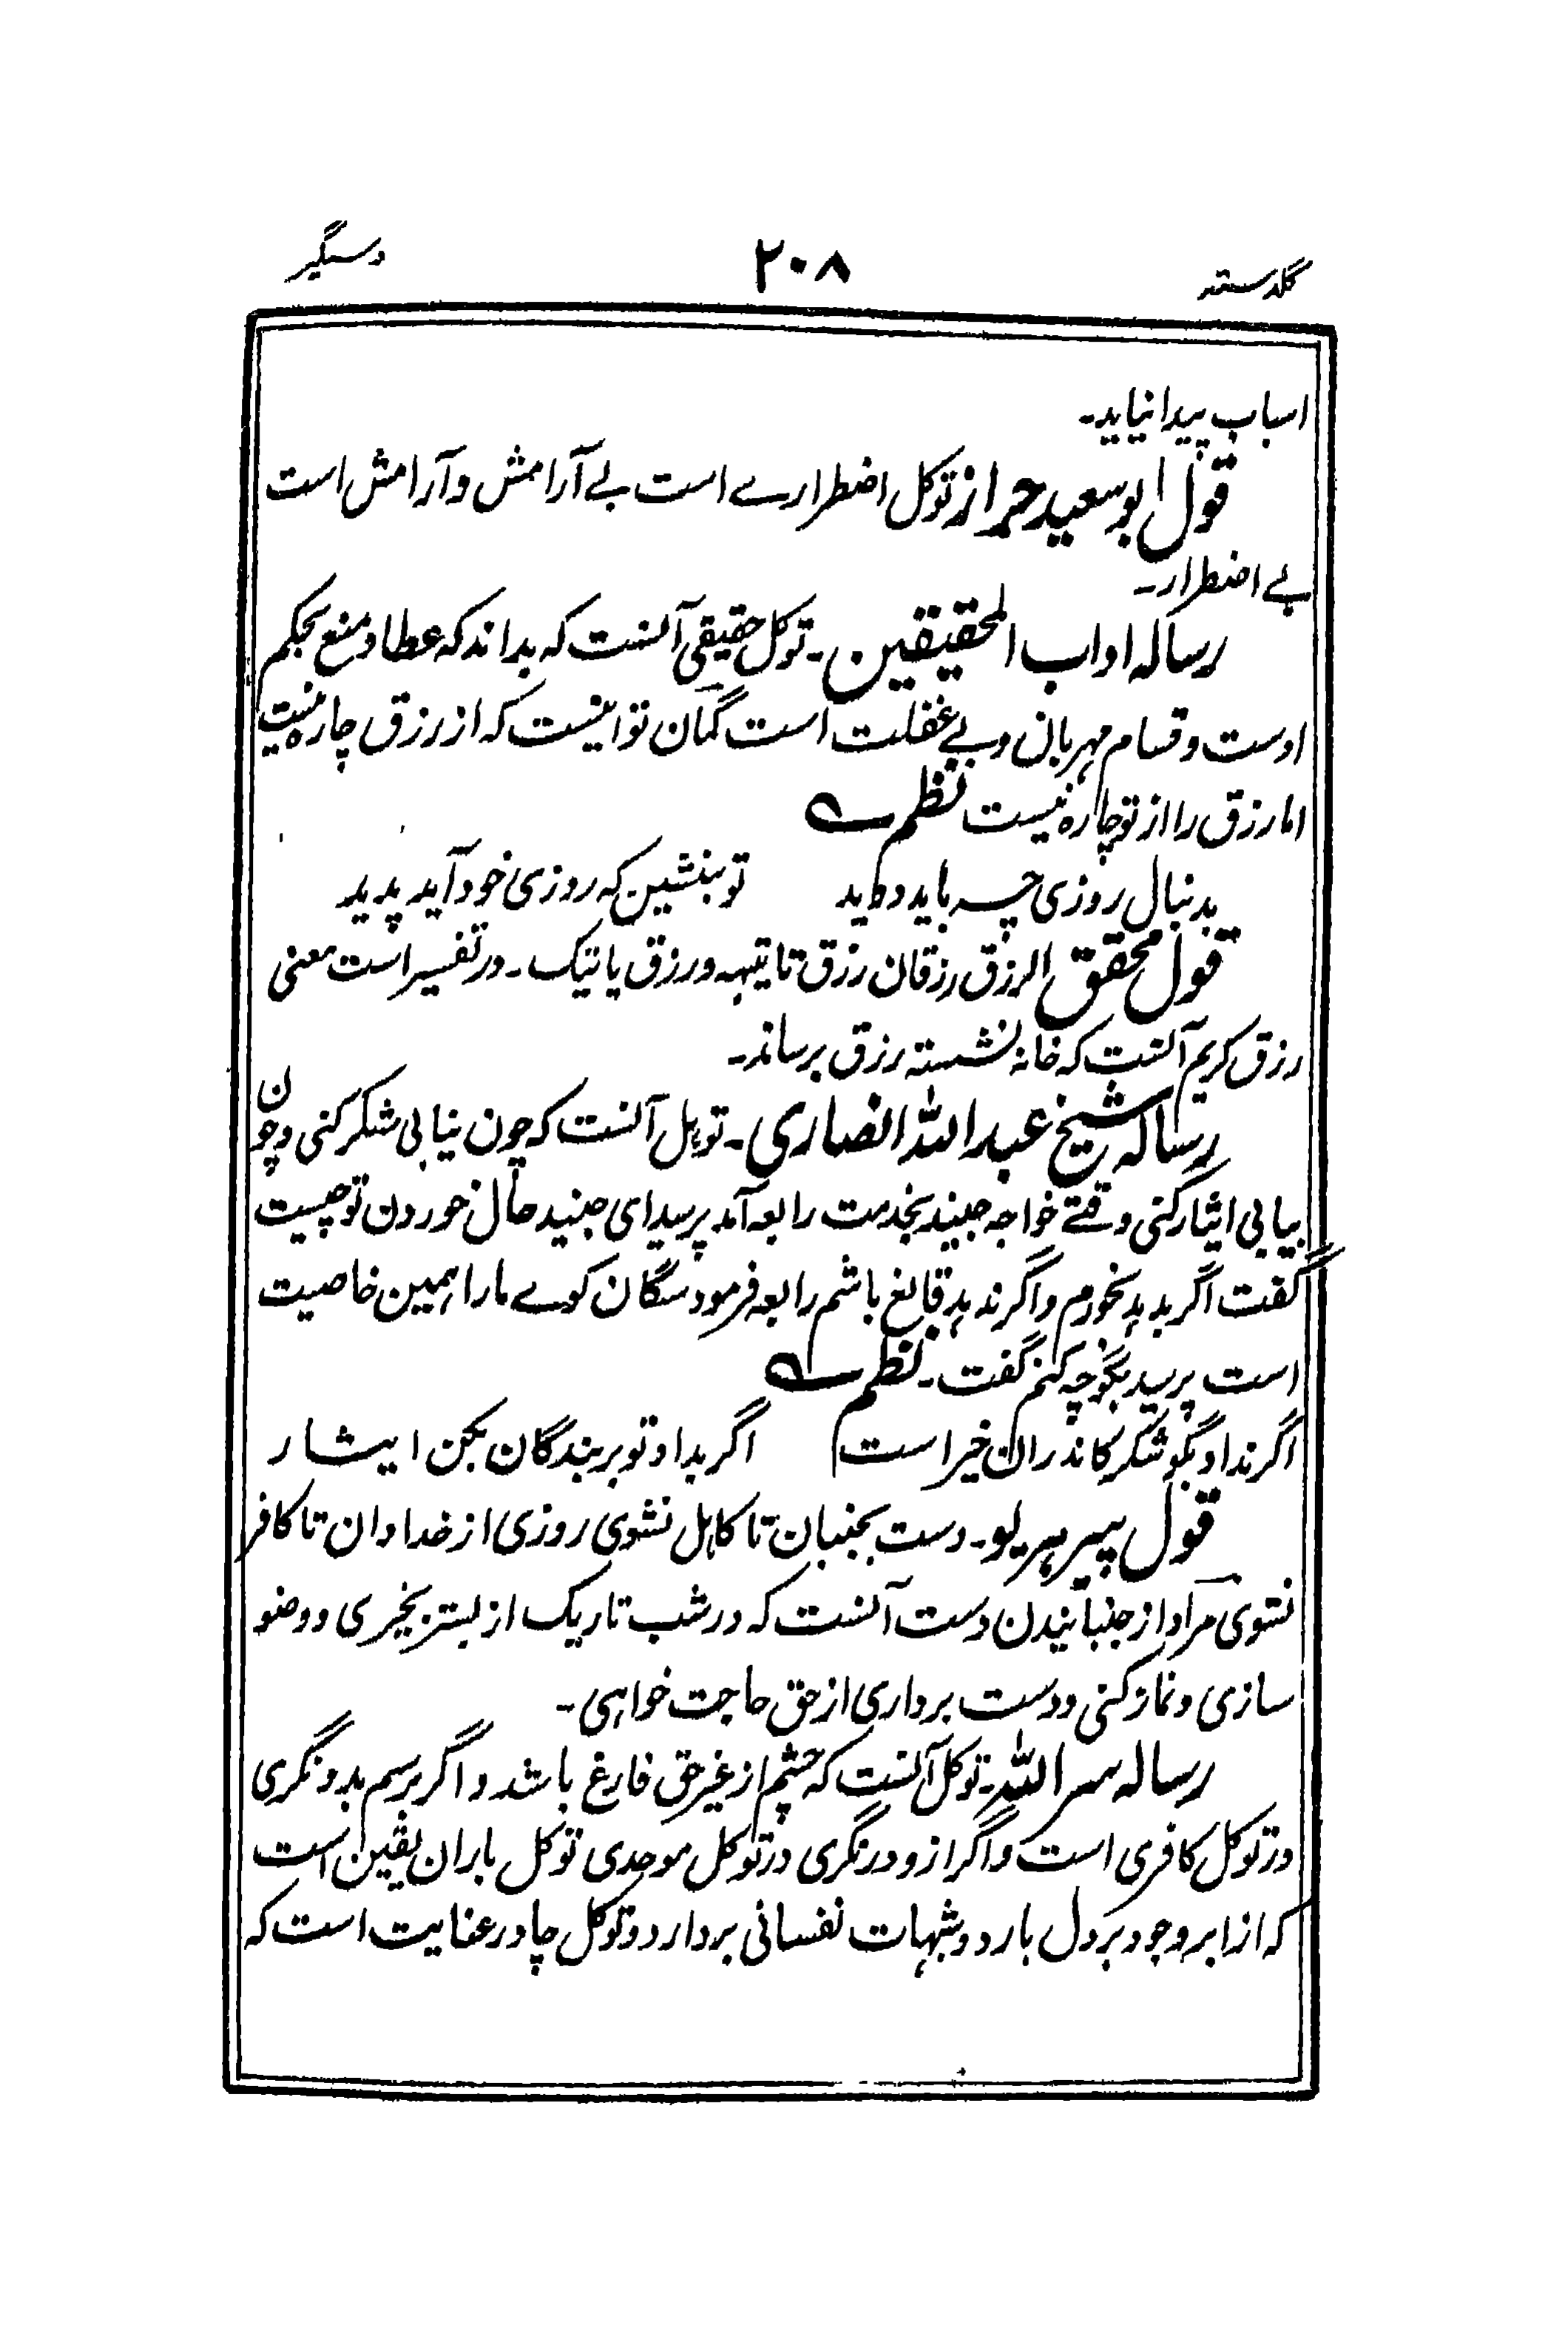 گلدسته ۲۰۸ دستگیر
اسباب پیدا نیاید۔
قول ابو سعید حراز توکل اضطرارے است بے آرامش و آرامش است
بے اضطرار۔
رساله اداب المحقیقین۔ توکل حقیقی آنست که بداند که عطا و منع بحکم
اوست و قسام مهربان و بے غفلت است گمان تو اینست که از رزق چاره نیست
اما رزق را از تو چاره نیست نظم
بدنبال روزی چه باید دوید تو بنشین که روزی خود آید پدید
قول محقق الرزق رزقان رزق تاتیهه و رزق یاتیک۔ در تفسیر است معنی
رزق کریم آنست که خانه نشسته رزق برساند۔
رساله شیخ عبدالله انصاری۔ توکل آنست که چون نیابی شکر کنی و چون
بیابی ایثار کنی وقتے خواجه جنید بخدمت رابعه آمد پرسید ای جنید حال خوردن تو چیست
گفت اگر بدهد بخورم و اگر ندهد قانع باشم رابعه فرمود سگان کوے ما را همین خاصیت
است پرسید بگو چه کنم گفت۔ نظم
اگر نداد بگو شکر کاندران خیر است اگر بداد تو بر بندگان بکن ایثار
قول پیر هریو۔ دست بجنبان تا کاهل نشوی روزی از خدا دان تا کافر
نشوی مراد از جنبانیدن دست آنست که در شب تاریک از بستر بخیزی و وضو
سازی و نماز کنی و دست برداری از حق حاجت خواهی۔
رساله سر الله۔ توکل آنست که چشم از غیر حق فارغ باشد و اگر برسم بدو نگری
در توکل کافری است و اگر ازو در نگری در توکل موحدی توکل باران یقین است
که از ابر وجود بر دل بارد و شبهات نفسانی بردارد و توکل چادر عنایت است که